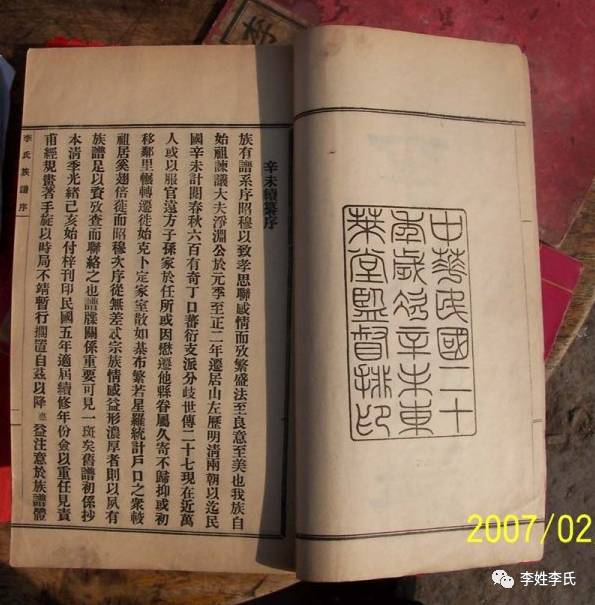 中華民國二十
年歲次辛未東
萊堂監督排印
辛未續纂序
族有譜系序昭穆以致孝思聯感情而攷繁盛法至良意至美也我族自
始祖諫議大夫淨淵公於元季至正二年遷居山左歷明清兩朝以迄民
國辛未計閱春秋六百有奇丁口蕃衍支派分歧世傳二十七現在近萬
人或以服官遠方子孫家於任所或因懋遷他縣眷屬久寄不歸抑或初
移鄰里輾轉遷徙始克卜定家室散如棊布繁若星羅統計戶口之衆較
祖居奚翅倍蓰而昭穆次序從無差忒宗族情感益形濃厚者則以夙有
族譜足以資攷查而聯絡之也譜牒關係重要可見一斑矣舊譜初係抄
本清季光緒己亥始付梓刊印民國五年適屆續修年份僉以重任見責
甫經規畫著手旋以時局不靖暫行擱置自茲以降益注意於族譜體
李氏族譜序
李
2007/02
李姓李氏